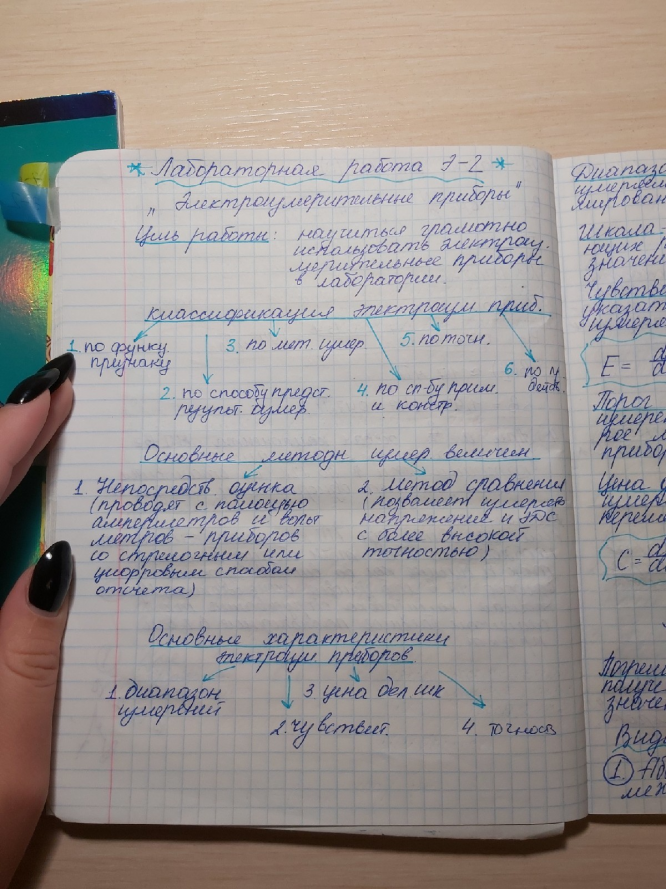 * Лабораторная работа Э-2 *
"Электроизмерительные приборы"
Цель работы: научиться грамотно
использовать электроиз.
мерительные приборы
в лаборатории.
Классификация электроизм приб.
1. по функц
признаку
3. по мет. измер
5. по точн.
2. по способу предст.
результ. измер.
4. по сп-бу прим.
и констр.
6. по
действ.
Основные методы измер величин
1. Непосредств. оценка
(проводят с помощью
амперметров и вольт
метров - приборов
со стрелочным или
цифровым способом
отсчёта)
2. метод сравнения
(позволяет измерять
напряжение и ЭДС
с более высокой
точностью)
Основные характеристики
электроизм приборов
1. диапазон
измерений
3. цена дел шк
2. чувствит.
4. точность
Диапазо
измерен
Школа-
ющих
значени
Чувстве
указат
измере
E = d/d
Порог
измерен
рое
прибор
Цена
измеря
переме
C = d/d
Погреш
получ
значен
Виды
1 Аб
меж